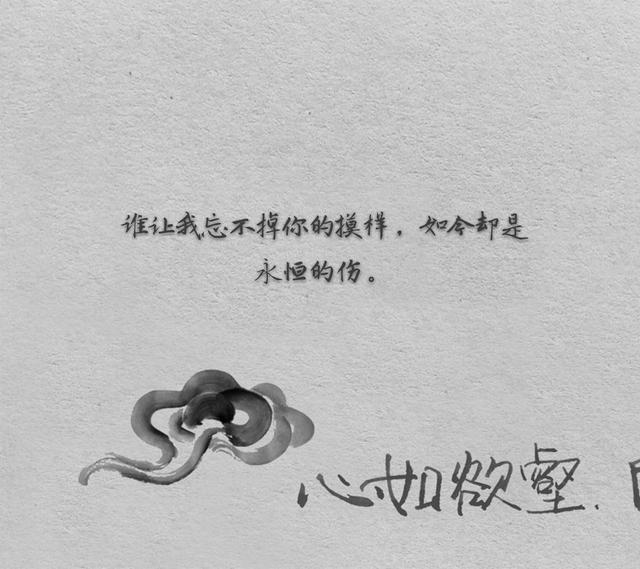 谁让我忘不掉你的摸样，如今却是
永恒的伤。
心如欲壑.